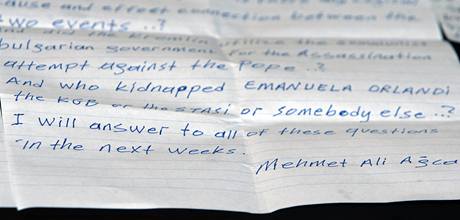 cause and effect connection between the
two events ..?
And did the Kremlin utilize the communist
bulgarian government for the Assassination
attempt against the Pope ..?
And who kidnapped EMANUELA ORLANDI
the KGB or the STASI or somebody else ...?
I will answer to all of these questions
in the next weeks.
Mehmet Ali Ağca